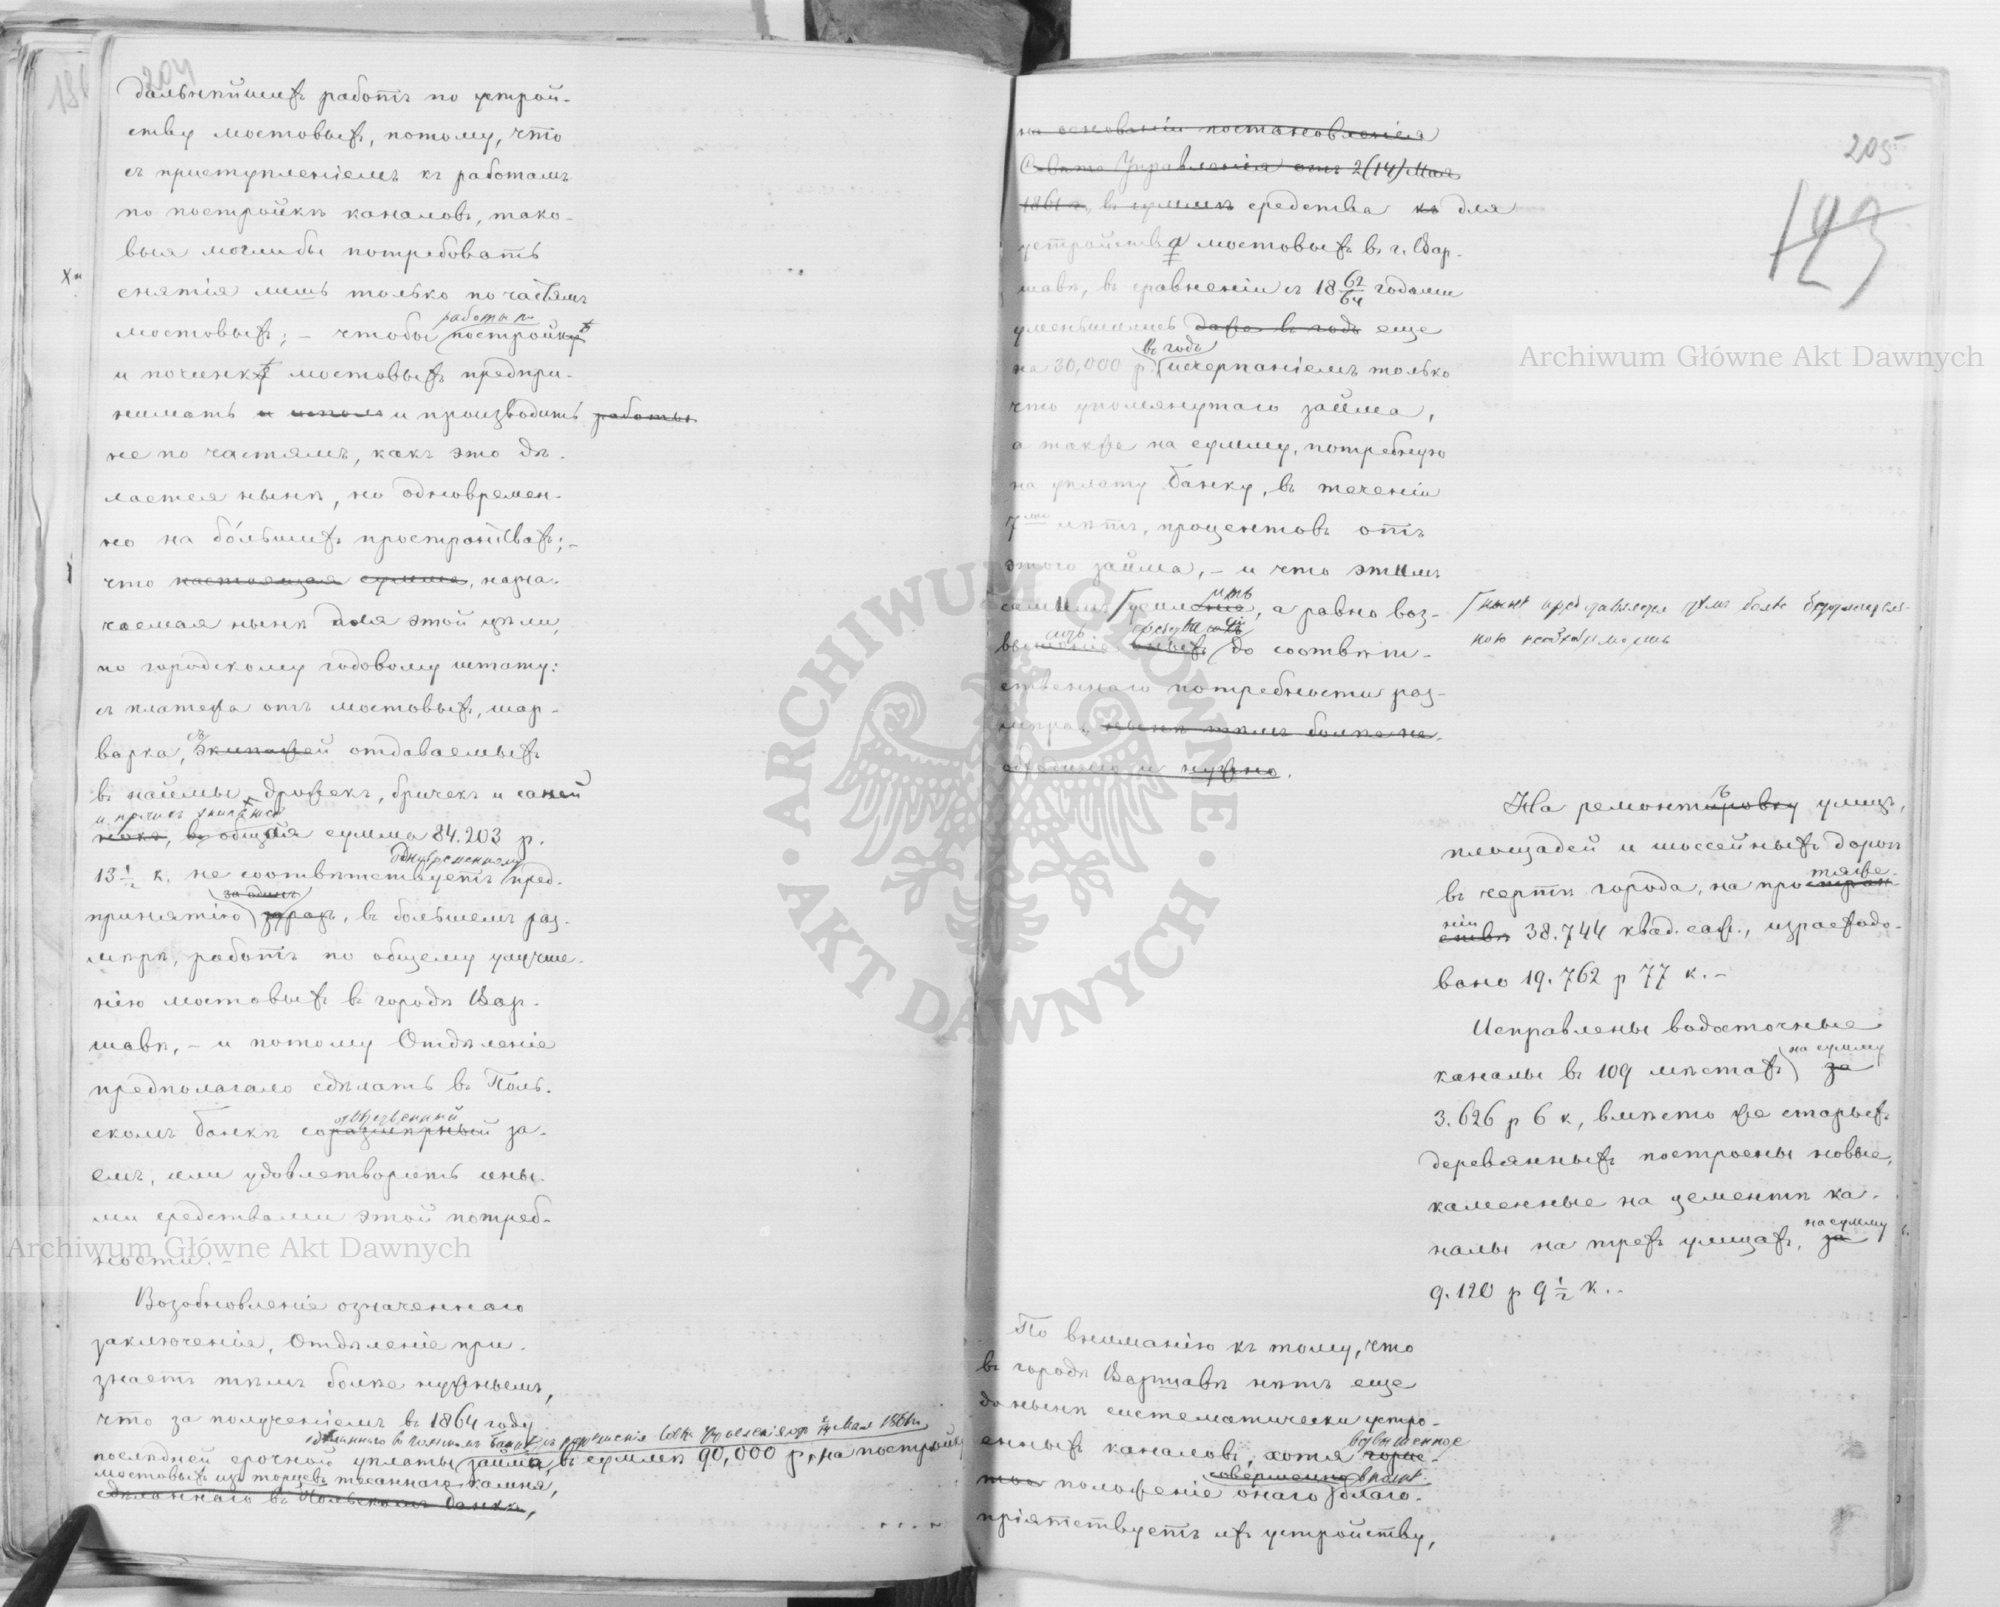 204
дальнѣйшихъ работъ по устрой-
ству мостовыхъ, потому, что
съ приступленіемъ къ работамъ
по постройкѣ каналовъ, тако-
выя моглибы потребовать
снятія лишь только по частямъ
работы по
мостовыхъ; – чтобы постройкѣ
и починкѣ мостовыхъ предпри-
нимать и производить работы
не по частямъ, какъ это дѣ-
лается нынѣ, но одновремен-
но на бóльшихъ пространствахъ; –
что настоящая сумма, назна-
чаемая нынѣ для этой цѣли,
по городскому годовому штату:
съ платежа отъ мостовыхъ, шар-
варка, съ экипажей отдаваемыхъ
въ наймы дрожекъ, бричекъ и саней
и прочихъ
общая сумма 84.203 р.
одновременному
13 ½ к. не соотвѣтствуетъ пред-
за одинъ
принятію заразъ, въ большемъ раз-
мѣрѣ, работъ по общему улучше-
нію мостовыхъ въ городѣ Вар-
шавѣ, – и потому Отдѣленіе
предполагало сдѣлать въ Поль-
скомъ банкѣ соразмѣрный за-
емъ, или удовлетворить ины-
ми средствами этой потреб-
ности. –
Возобновленіе означеннаго
заключенія, Отдѣленіе при-
знаетъ тѣмъ болѣе нужнымъ,
что за полученіемъ въ 1864 году
послѣдней срочной уплаты займа, въ суммѣ 90,000 р, на постройку
мостовыхъ изъ торцевъ тесаннаго камня,
сдѣланнаго въ Польскомъ банкѣ,
205
193
на основаніи постановленія
Совѣта Управленія отъ 2(14) Мая
1861 г, въ суммѣ средства къ для
устройства мостовыхъ въ г. Вар-
шавѣ, въ сравненіи съ 18 62/64 годами
уменьшились даже въ годъ еще
въ годъ
на 30,000 р. исчерпаніемъ только
что упомянутаго займа,
а также на сумму, потребную
на уплату банку, въ теченіи
7ми лѣтъ, процентовъ отъ
этого займа, – и что этимъ
самимъ усиленіе, а равно воз-
вышеніе оныхъ до соотвѣт-
ственнаго потребности раз-
мѣра, нынѣ тѣмъ болѣе не-
обходимо и нужно.
нынѣ представляется уже болѣе
На ремонтировку улицъ,
площадей и шоссейныхъ дорогъ
въ чертѣ города, на простран-
ствѣ 38.744 квад. саж., израсходо-
вано 19.762 р 77 к. –
Исправлены водосточные
на сумму
каналы въ 109 мѣстахъ за
3.626 р 6 к, вмѣсто же старыхъ
деревянныхъ построены новые,
каменные на цементѣ ка-
на сумму
налы на трехъ улицахъ, за
9.120 р 9 ½ к. .
По вниманію къ тому, что
въ городѣ Варшавѣ нѣтъ еще
донынѣ систематически устро-
возвышенное
енныхъ каналовъ, хотя
совершенно вполнѣ
положеніе онаго благо-
пріятствуетъ ихъ устройству,
Archiwum Główne Akt Dawnych
Archiwum Główne Akt Dawnych
ARCHIWUM GŁÓWNE · AKT DAWNYCH ·